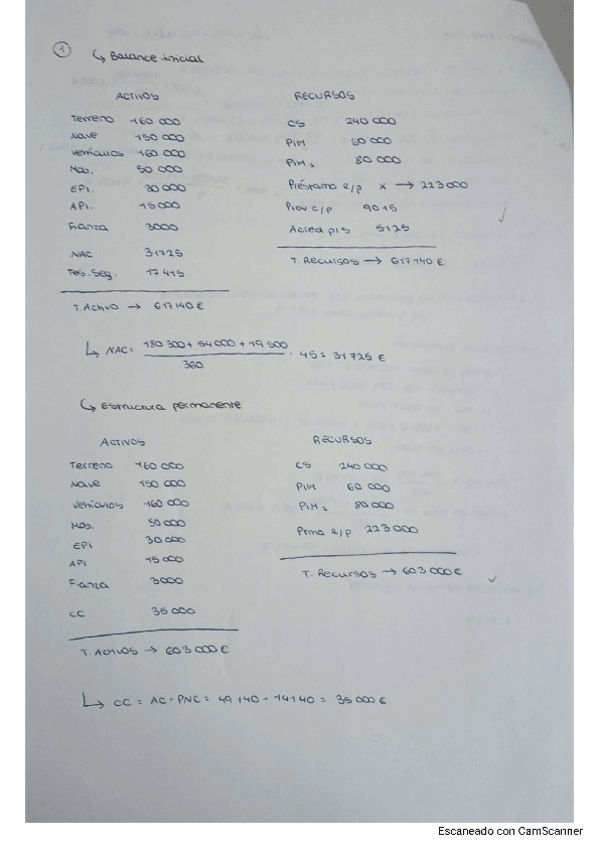 1
↳ Balance inicial
ACTIVOS
RECURSOS
Terreno 160 000
Nave 150 000
Vehículos 160 000
Mob. 50 000
EPI. 30 000
API. 15 000
Fianza 3000
NAC 31725
Tes. Seg. 17 415
T. Activo → 617 140 €
CS 240 000
PIM 60 000
PIM 2 80 000
Préstamo R/p x → 223 000
Prov c/p 9015
Acred p/s 5125
T. Recursos → 617 140 €
↳ NAC = 180 300 + 54 000 + 19 500 / 360 · 45 = 31 725 €
↳ Estructura permanente
ACTIVOS
RECURSOS
Terreno 160 000
Nave 150 000
Vehículos 160 000
Mob. 50 000
EPI 30 000
API 15 000
Fianza 3000
CC 35 000
T. Activos → 603 000 €
CS 240 000
PIM 60 000
PIM 2 80 000
R/p 223 000
T. Recursos → 603 000 €
↳ CC = AC - PNC = 49 140 - 14 140 = 35 000 €
Escaneado con CamScanner